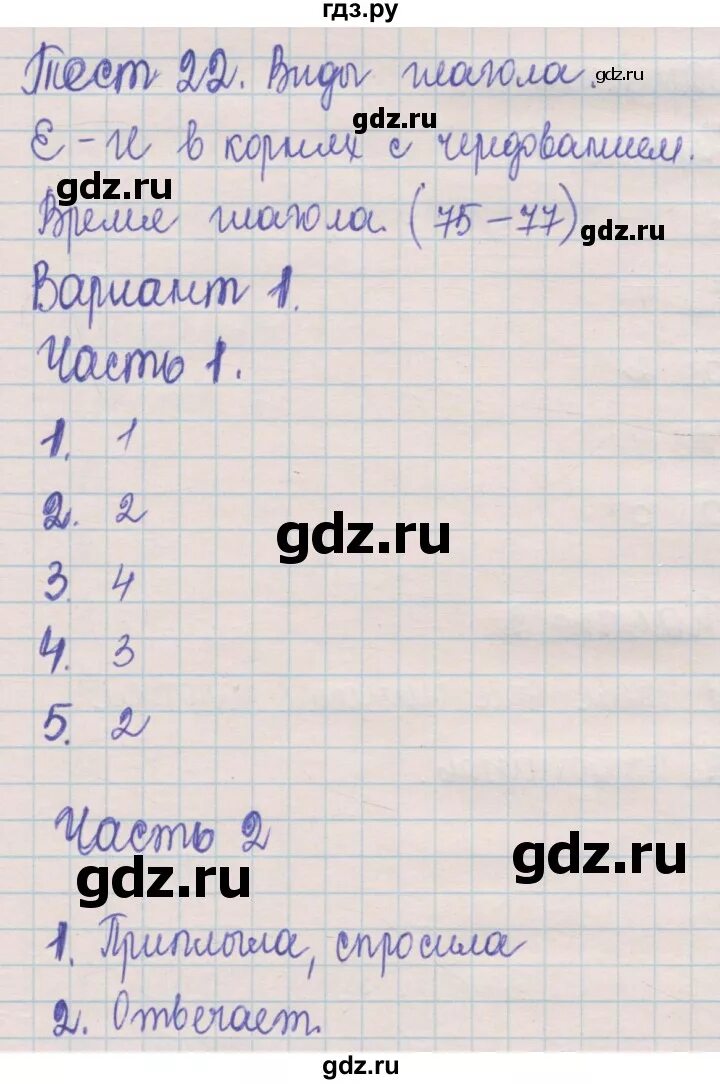 гдз.ру
Тест 22. Виды глагола. gdz.ru
gdz.ru
Е - И в корнях с чередованием.
gdz.ru
Время глагола. (75 - 77) gdz.ru
Вариант 1.
Часть 1.
1. 1
2. 2
gdz.ru
3. 4
4. 3
5. 2
Часть 2
gdz.ru
gdz.ru
1. Приплыла, спросила
2. Отвечает.
gdz.ru